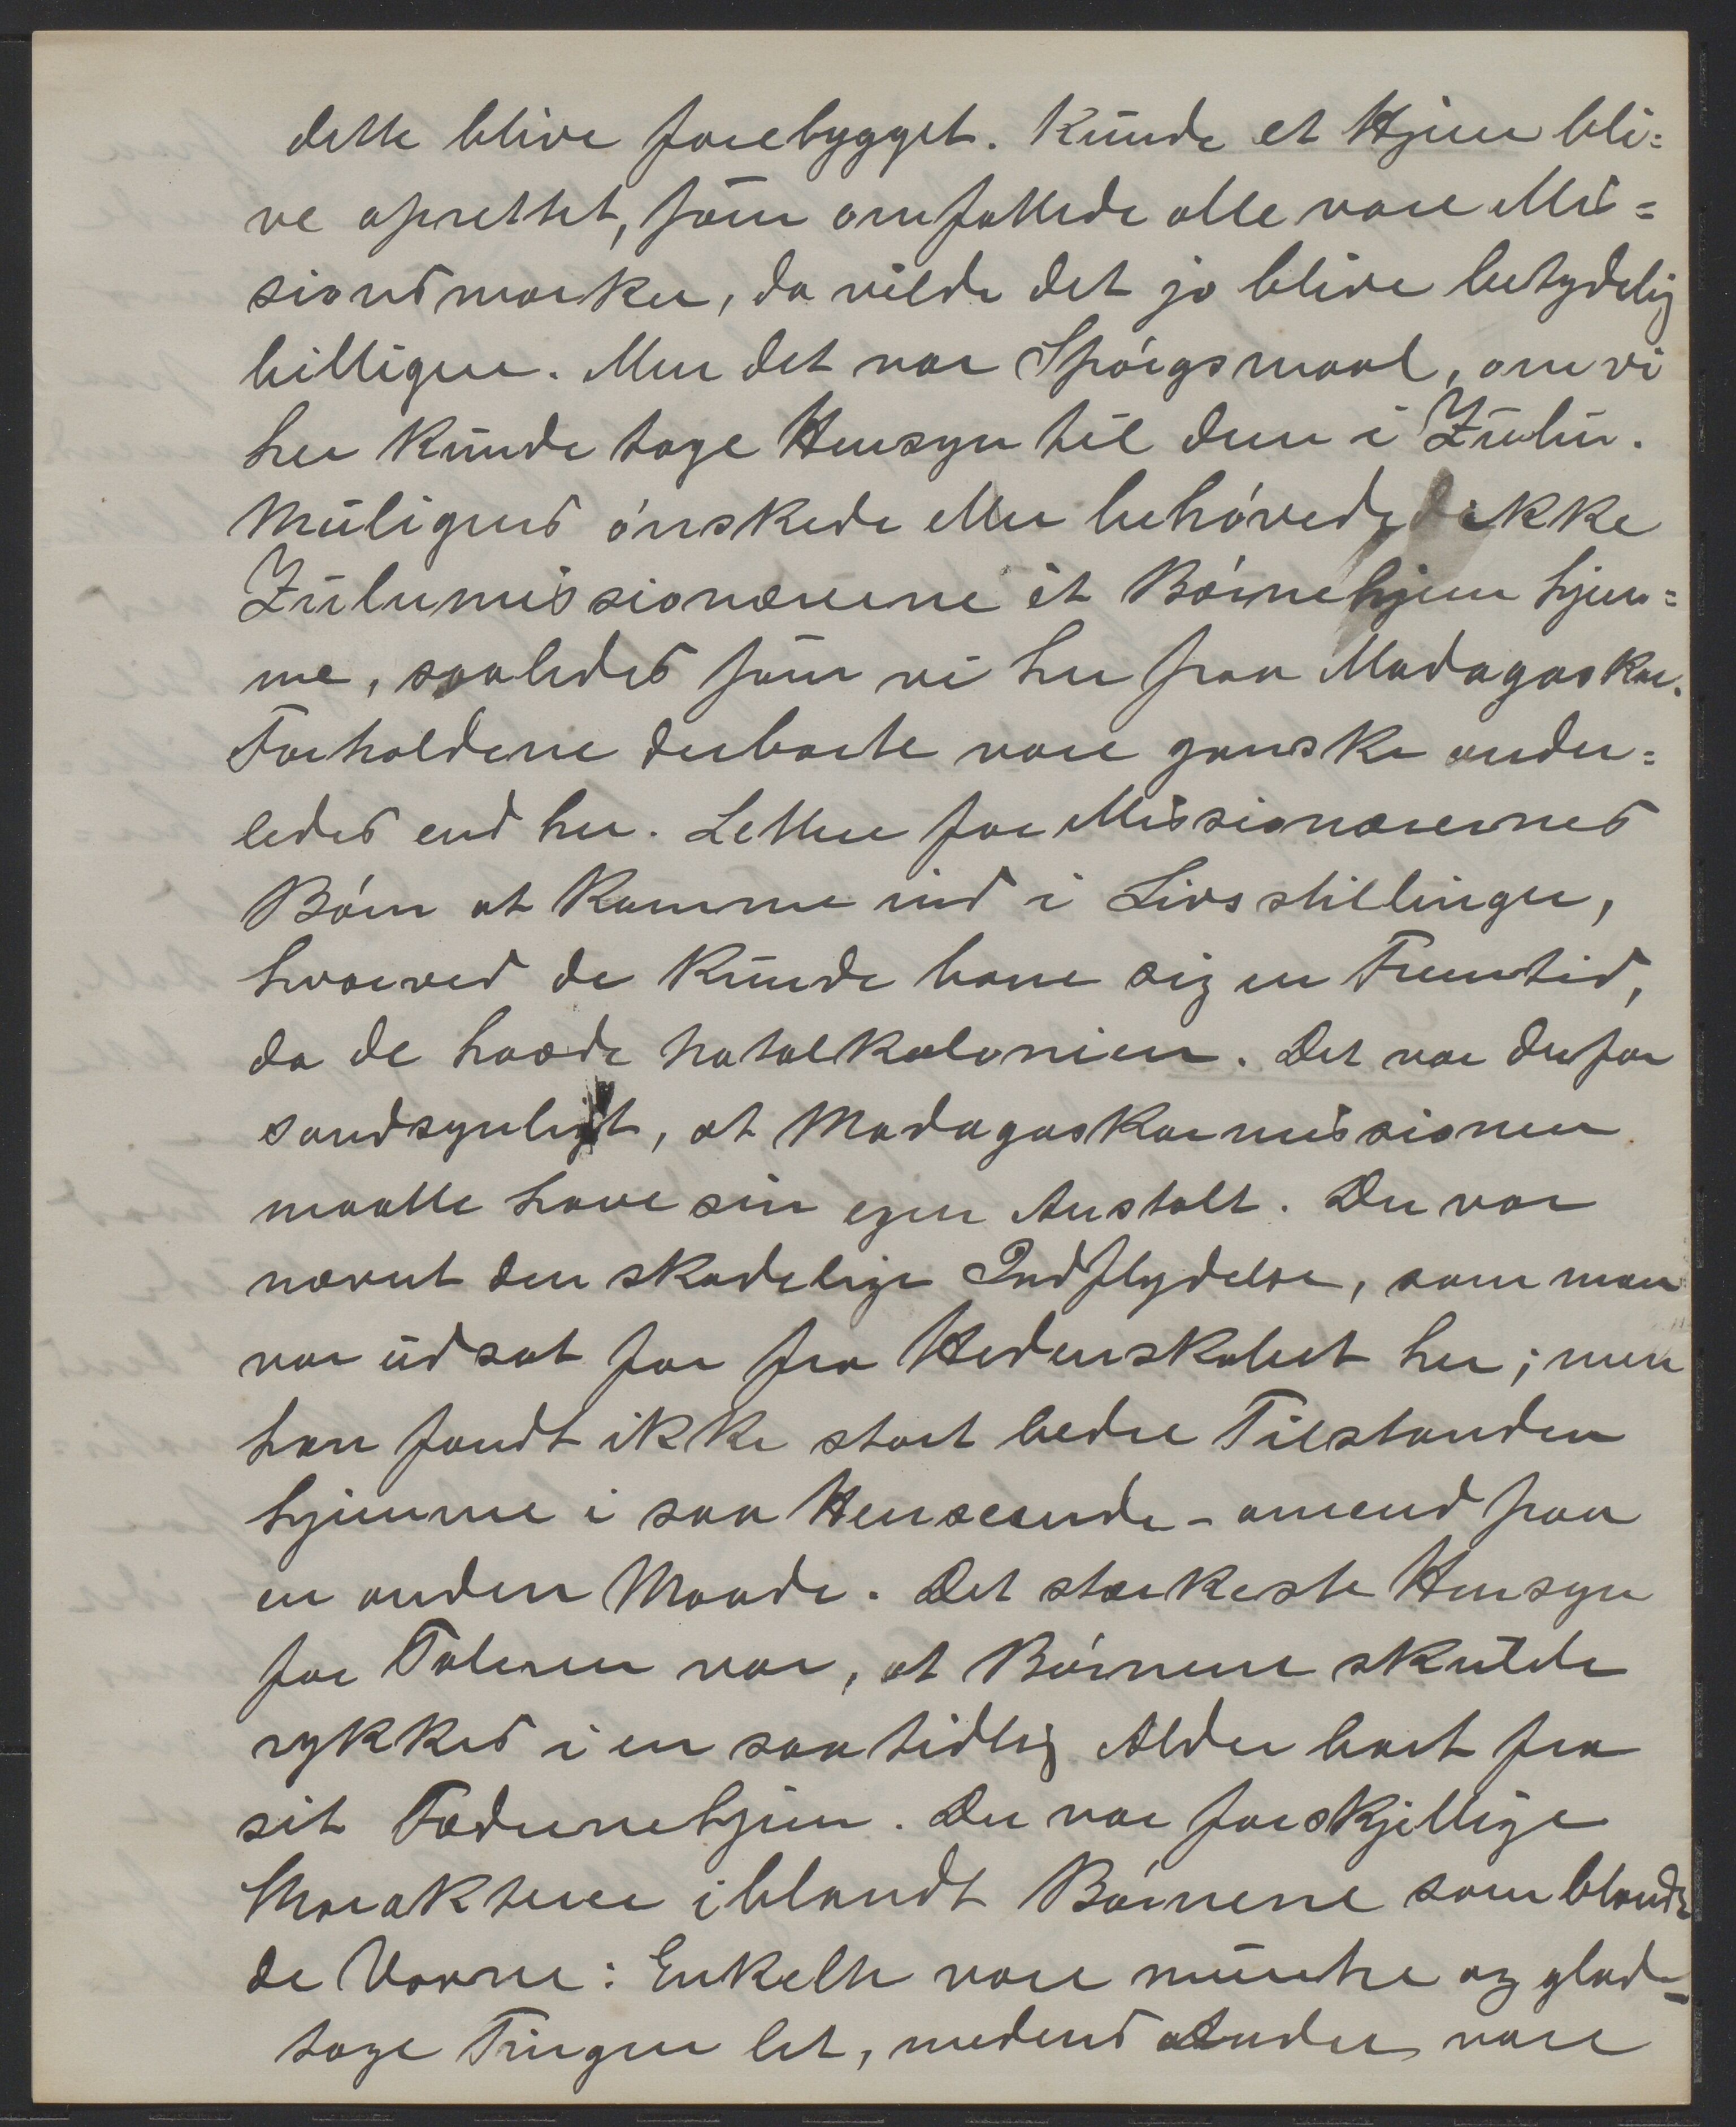 dette blive forebygget. Kunde et Hjem bli=
ve oprettet, som omfattede alle vore Mis=
sionsmarker, da vilde det jo blive betydelig
billigere. Men det var Spørgsmaal, om vi
her kunde tage Hensyn til dem i Zulu.
Muligens ønskede eller behøvede ikke
Zulumissionærerne et Børnehjem hjem=
me, saaledes som vi her paa Madagaskar.
Forholdene derborte vare ganske ander=
ledes end her. Lettere for Missionærernes
Børn at komme ind i Livsstillinger,
hvorved de kunde bane sig en Fremtid,
da de havde Natalkolonien. Det var derfor
sandsynligt, at Madagaskarmissionen
maatte have sin egen Anstalt. Der var
nævnt den skadelige Indflydelse, som man
var udsat for fra Hedenskabet her; men
han fandt ikke stort bedre Tilstanden
hjemme i saa Henseende - omend paa
en anden Maade. Det stærkeste Hensyn
for Taleren var, at Børnene skulde
rykkes i en saa tidlig Alder bort fra
sit Fædrenehjem. Der var forskjellige
Karakterer iblandt Børnene som blandt
de Voxne: Enkelte vare muntre og glade
tage Tingen let, medens Andre vare